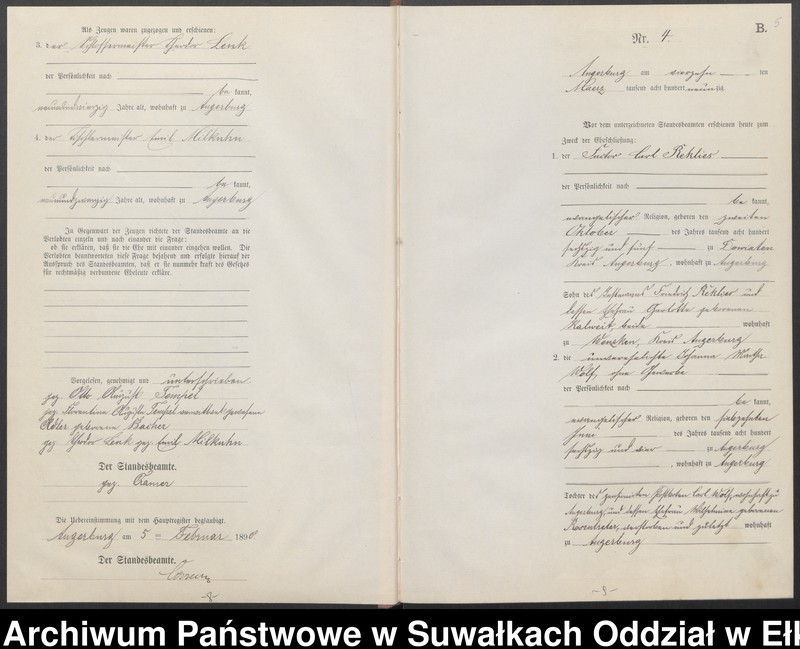 Als Zeugen waren zugezogen und erschienen:
3. der Schlossermeister Theodor Lenk
der Persönlichkeit nach
be kannt,
neunundvierzig Jahre alt, wohnhaft zu Angerburg
4. der Tischlermeister Emil Milkuhn
der Persönlichkeit nach
be kannt,
neunundzwanzig Jahre alt, wohnhaft zu Angerburg
In Gegenwart der Zeugen richtete der Standesbeamte an die
Verlobten einzeln und nach einander die Frage:
ob sie erklären, daß sie die Ehe mit einander eingehen wollen. Die
Verlobten beantworteten diese Frage bejahend und erfolgte hierauf der
Ausspruch des Standesbeamten, daß er sie nunmehr kraft des Gesetzes
für rechtmäßig verbundene Eheleute erkläre.
Vorgelesen, genehmigt und unterschrieben
gez. Otto August Tempel
gez. Florentine Auguste Tempel verwittwet gewesene
Adler geborene Bacher
gez. Theodor Lenk gez. Emil Milkuhn
Der Standesbeamte.
gez. Cramer
Die Uebereinstimmung mit dem Hauptregister beglaubigt.
Angerburg am 5ten Februar 1890.
Der Standesbeamte.
-8-
B. 5
Nr. 4.
Angerburg am vierzehn ten
Maerz tausend acht hundert neunzig.
Vor dem unterzeichneten Standesbeamten erschienen heute zum
Zweck der Eheschließung:
1. der Carl Rehlies
der Persönlichkeit nach
be kannt,
evangelischer Religion, geboren den zweiten
Oktober des Jahres tausend acht hundert
sechzig und fünf zu Dowiaten
Kreis Angerburg, wohnhaft zu Angerburg
Sohn des Friedrich Rehlies und
dessen Ehefrau Charlotte geborenen
Kalweit, beide wohnhaft
zu Wenzken, Kreis Angerburg
2. die unverehelichte Johanna Martha
Wolf, ohne Gewerbe
der Persönlichkeit nach
be kannt,
evangelischer Religion, geboren den siebzehnten
Juni des Jahres tausend acht hundert
sechszig und vier zu Angerburg
, wohnhaft zu Angerburg
Tochter des Postboten Carl Wolf, wohnhaft zu
Angerburg, und dessen Ehefrau Wilhelmine geborenen
verstorben und zuletzt wohnhaft
zu Angerburg
Archiwum Państwowe w Suwałkach Oddział w Eł